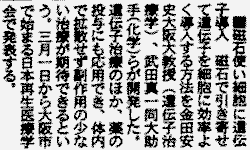 磁石使い細胞に遺伝
子導入　磁石で引き寄せ
て遺伝子を細胞に効率よ
く導入する方法を金田安
史大阪大教授（遺伝子治
療学）、武田真一同大助
手（化学）らが開発した。
遺伝子治療のほか、薬の
投与にも応用でき、体内
で拡散せず副作用の少な
い治療が期待できるとい
う。三月一日から大阪市
で始まる日本再生医療学
会で発表する。